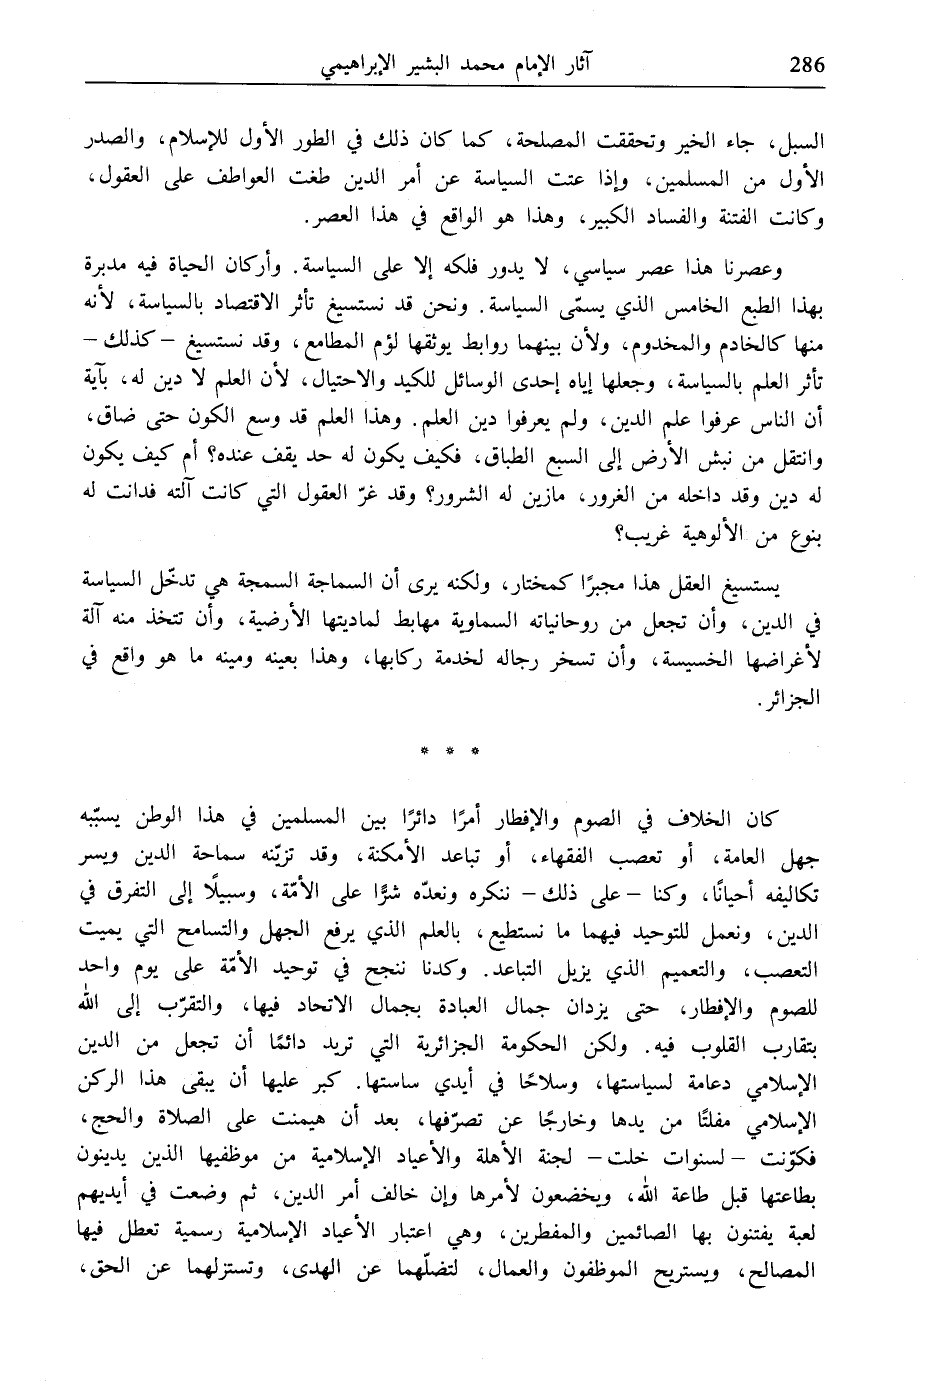 286
آثار الإمام محمد البشير الإبراهيمي
السبل، جاء الخير وتحققت المصلحة، كما كان ذلك في الطور الأول للإسلام، والصدر
الأول من المسلمين، وإذا عتت السياسة عن أمر الدين طغت العواطف على العقول،
وكانت الفتنة والفساد الكبير، وهذا هو الواقع في هذا العصر.
وعصرنا هذا عصر سياسي، لا يدور فلكه إلا على السياسة. وأركان الحياة فيه مدبرة
بهذا الطبع الخامس الذي يسمّى السياسة. ونحن قد نستسيغ تأثر الاقتصاد بالسياسة، لأنه
منها كالخادم والمخدوم، ولأن بينهما روابط يوثقها لؤم المطامع، وقد نستسيغ – كذلك –
تأثر العلم بالسياسة، وجعلها إياه إحدى الوسائل للكيد والاحتيال، لأن العلم لا دين له، بآية
أن الناس عرفوا علم الدين، ولم يعرفوا دين العلم. وهذا العلم قد وسع الكون حتى ضاق،
وانتقل من نبش الأرض إلى السبع الطباق، فكيف يكون له حد يقف عنده؟ أم كيف يكون
له دين وقد داخله من الغرور، مازين له الشرور؟ وقد غرّ العقول التي كانت آلته فدانت له
بنوع من الألوهية غريب؟
يستسيغ العقل هذا مجبرًا كمختار، ولكنه يرى أن السماجة السمجة هي تدخّل السياسة
في الدين، وأن تجعل من روحانياته السماوية مهابط لماديتها الأرضية، وأن تتخذ منه آلة
لأغراضها الخسيسة، وأن تسخر رجاله لخدمة ركابها، وهذا بعينه ومينه ما هو واقع في
الجزائر.
* * *
كان الخلاف في الصوم والإفطار أمرًا دائرًا بين المسلمين في هذا الوطن يسبّبه
جهل العامة، أو تعصب الفقهاء، أو تباعد الأمكنة، وقد تزيّنه سماحة الدين ويسر
تكاليفه أحيانًا، وكنا – على ذلك – ننكره ونعدّه شرًّا على الأمّة، وسبيلًا إلى التفرق في
الدين، ونعمل للتوحيد فيهما ما نستطيع، بالعلم الذي يرفع الجهل والتسامح التي يميت
التعصب، والتعميم الذي يزيل التباعد. وكدنا ننجح في توحيد الأمّة على يوم واحد
للصوم والإفطار، حتى يزدان جمال العبادة بجمال الاتحاد فيها، والتقرّب إلى الله
بتقارب القلوب فيه. ولكن الحكومة الجزائرية التي تريد دائمًا أن تجعل من الدين
الإسلامي دعامة لسياستها، وسلاحًا في أيدي ساستها. كبر عليها أن يبقى هذا الركن
الإسلامي مفلتًا من يدها وخارجًا عن تصرّفها، بعد أن هيمنت على الصلاة والحج،
فكوّنت – لسنوات خلت – لجنة الأهلة والأعياد الإسلامية من موظفيها الذين يدينون
بطاعتها قبل طاعة الله، ويخضعون لأمرها وإن خالف أمر الدين، ثم وضعت في أيديهم
لعبة يفتنون بها الصائمين والمفطرين، وهي اعتبار الأعياد الإسلامية رسمية تعطل فيها
المصالح، ويستريح الموظفون والعمال، لتضلّهما عن الهدى، وتستزلهما عن الحق،